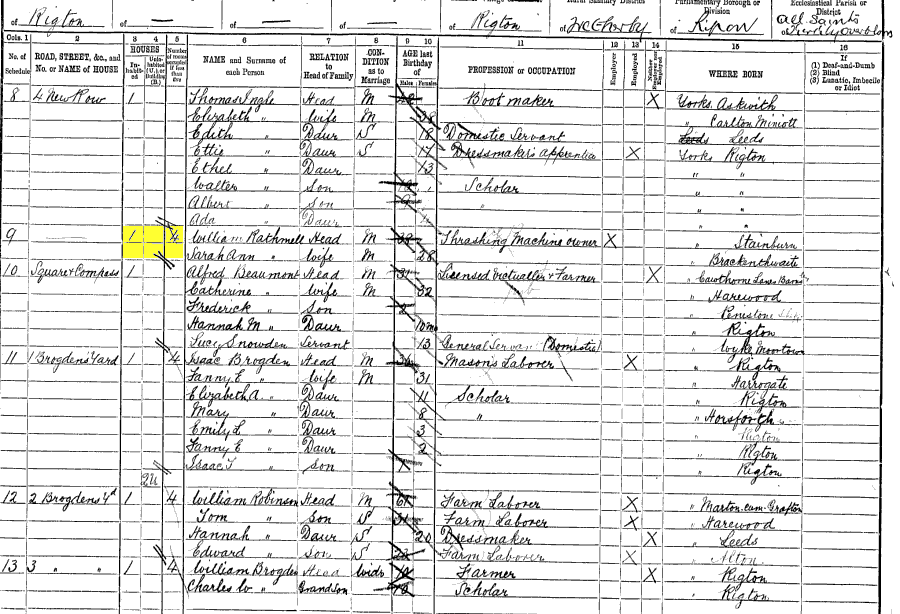 Rigton of — of — of — of Rigton of Wetherby of Ripon of All Saints
Cols. 1 2 3 4 5 6 7 8 9 10 11 12 13 14 15 16
No. of Schedule ROAD, STREET, &c., and No. or NAME of HOUSE HOUSES In-habit-ed NAME and Surname of each Person RELATION to Head of Family CON-DITION as to Marriage AGE last Birthday of Males Females PROFESSION or OCCUPATION Employer Employed Neither Employer nor Employed WHERE BORN If (1) Deaf-and-Dumb (2) Blind (3) Lunatic, Imbecile or Idiot
8 4 New Row 1 Thomas Ingle Head M Boot maker X Yorks. Askwith
Elizabeth " Wife M 38 " Carlton Miniott
Edith " Daur S 18 Domestic Servant Leeds Leeds
Ettie " Daur S 17 Dressmaker's apprentice X Yorks Rigton
Ethel " Daur 13 " "
Walter " Son Scholar " "
Albert " Son " " "
Ada " Daur " "
9 1 4 William Rathmell Head M 38 Thrashing Machine owner X " Stainburn
Sarah Ann " Wife M 28 " Brackenthwaite
10 Square & Compass 1 Alfred Beaumont Head M 31 Licensed Victualler & Farmer X " Cawthorne Lanes Barns
Catherine " Wife M 32 " Harewood
Frederick " Son 2 " Penistone
Hannah M. " Daur 10 mo " Rigton
Lucy Snowden Servant 13 General Servant (Domestic) " Wyke Moortown
11 1 Brogden's Yard 1 4 Isaac Brogden Head M Mason's Laborer X " Rigton
Fanny E " Wife M 31 " Harrogate
Elizabeth A. " Daur 11 Scholar " Rigton
Mary " Daur 8 " " Horsforth
Emily L " Daur 3 " Rigton
Fanny E " Daur 2 " Rigton
Isaac T " Son " Rigton
12 2 Brogdens Yd 1 4 William Robinson Head M 61 Farm Laborer X " Marton-cum-Grafton
Tom " Son S 31 Farm Laborer X " Harewood
Hannah " Daur S 20 Dressmaker X " Leeds
Edward " Son S Farm Laborer X " Alton
13 3 " " 1 4 William Brogden Head Widr Farmer X " Rigton
Charles W " Grandson Scholar " Rigton